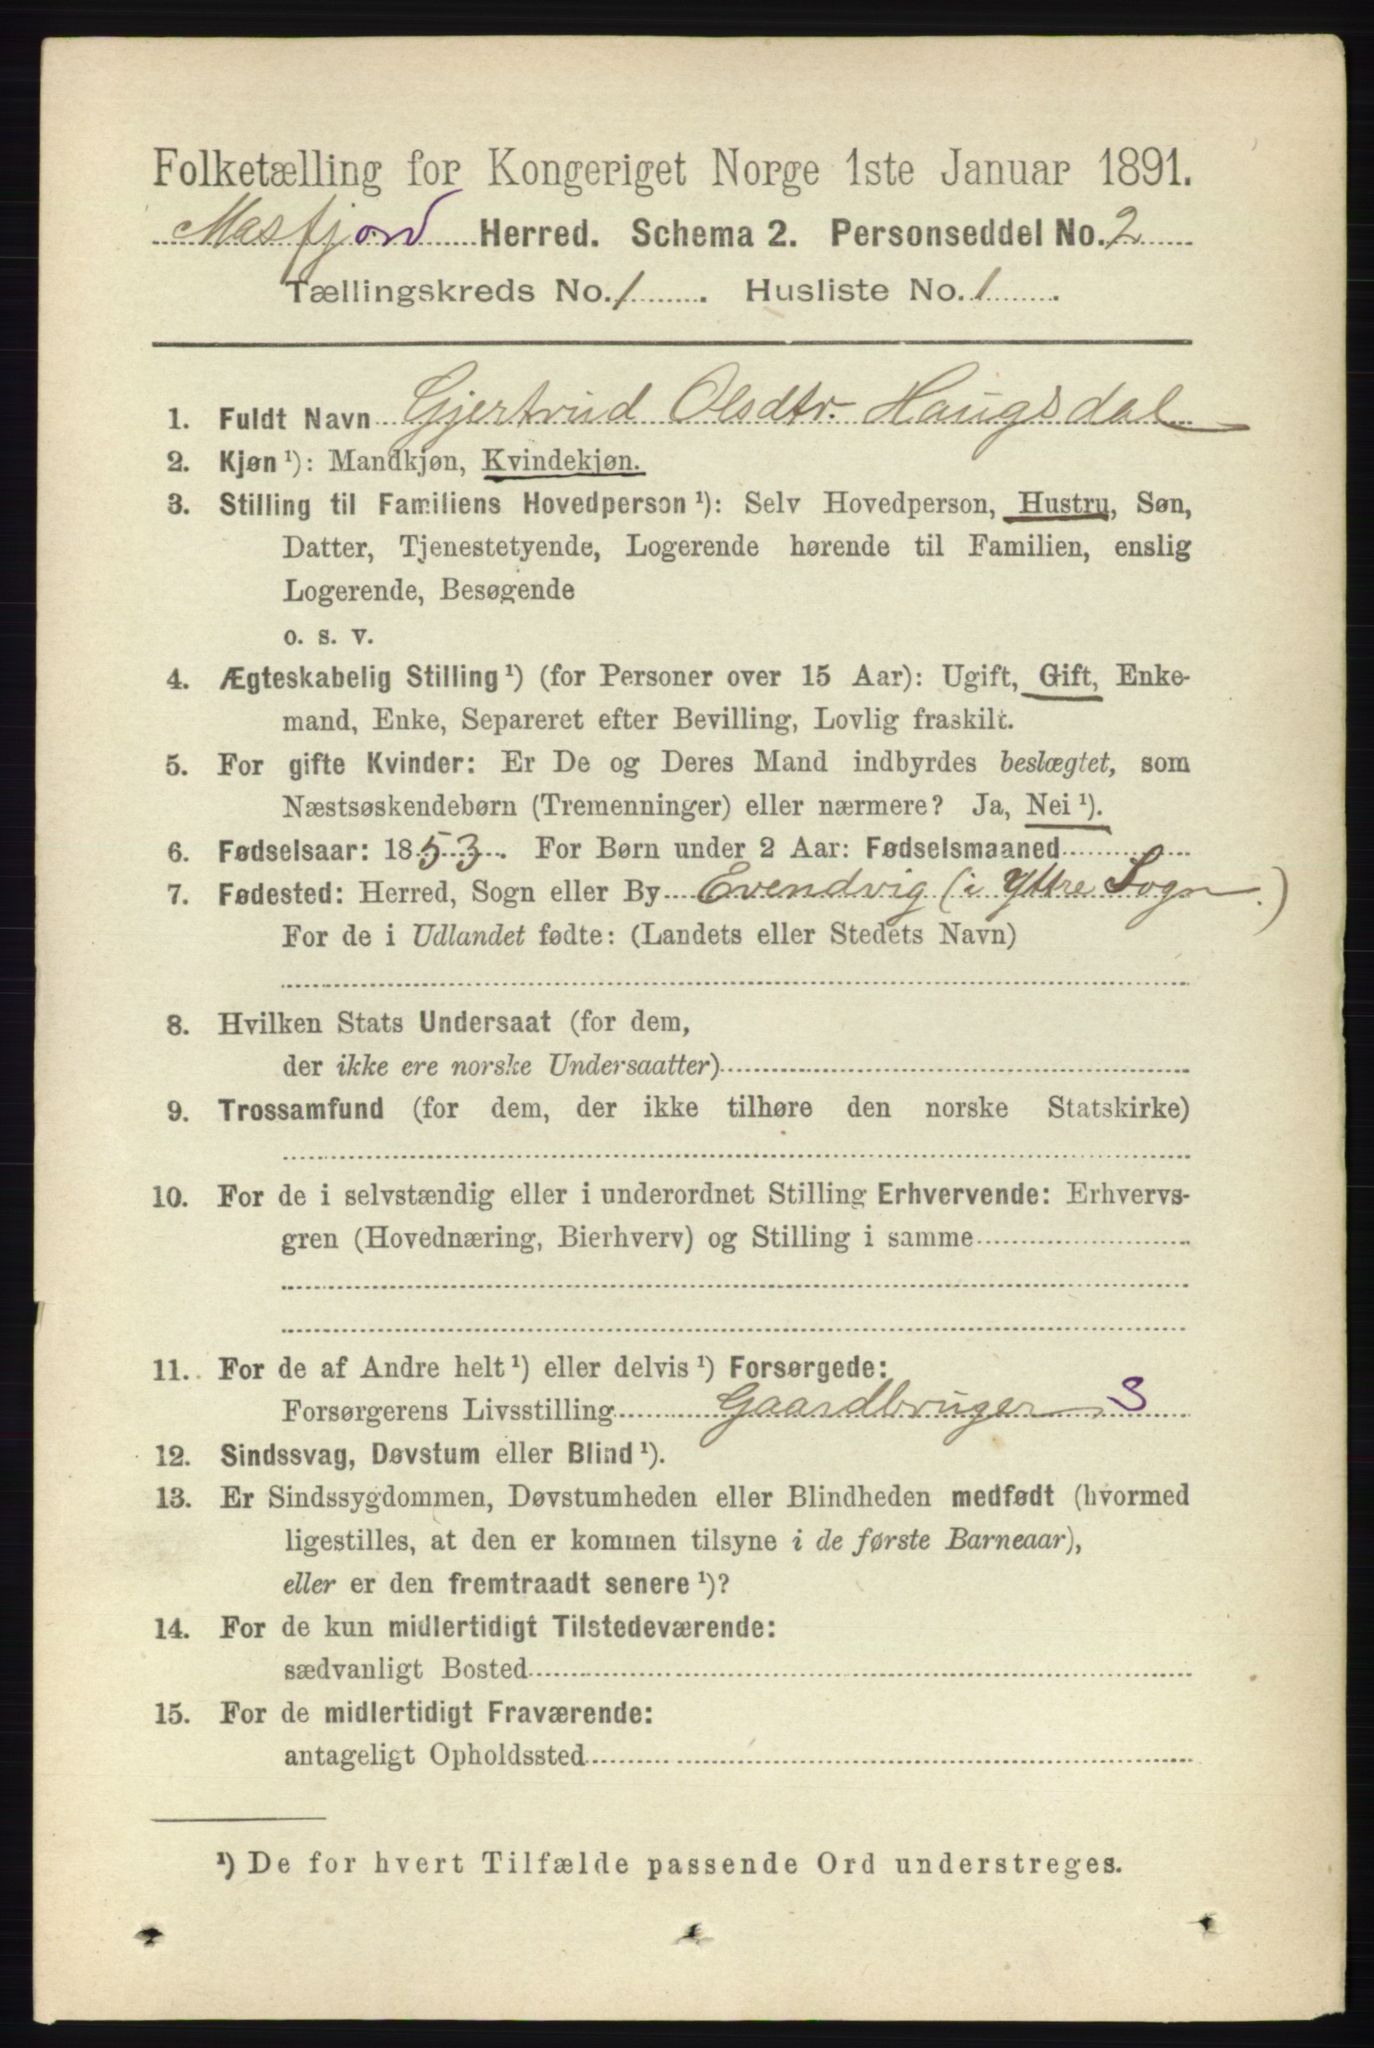 Folketælling for Kongeriget Norge 1ste Januar 1891.
Masfjord Herred. Schema 2. Personseddel No. 2
Tællingskreds No. 1 . Husliste No. 1 .
1. Fuldt Navn Gjertrud Olsdtr. Haugsdal
2. Kjøn¹): Mandkjøn, Kvindekjøn.
3. Stilling til Familiens Hovedperson¹): Selv Hovedperson, Hustru, Søn,
Datter, Tjenestetyende, Logerende hørende til Familien, enslig
Logerende, Besøgende
o. s. v.
4. Ægteskabelig Stilling¹) (for Personer over 15 Aar): Ugift, Gift, Enke-
mand, Enke, Separeret efter Bevilling, Lovlig fraskilt.
5. For gifte Kvinder: Er De og Deres Mand indbyrdes beslægtet, som
Næstsøskendebørn (Tremenninger) eller nærmere? Ja, Nei¹).
6. Fødselsaar: 1853 . For Børn under 2 Aar: Fødselsmaaned
7. Fødested: Herred, Sogn eller By Evendvig (i Yttre Sogn.)
For de i Udlandet fødte: (Landets eller Stedets Navn)
8. Hvilken Stats Undersaat (for dem,
der ikke ere norske Undersaatter)
9. Trossamfund (for dem, der ikke tilhøre den norske Statskirke)
10. For de i selvstændig eller i underordnet Stilling Erhvervende: Erhvervs-
gren (Hovednæring, Bierhverv) og Stilling i samme
11. For de af Andre helt¹) eller delvis¹) Forsørgede:
Forsørgerens Livsstilling Gaardbruger S
12. Sindssvag, Døvstum eller Blind¹).
13. Er Sindssygdommen, Døvstumheden eller Blindheden medfødt (hvormed
ligestilles, at den er kommen tilsyne i de første Barneaar),
eller er den fremtraadt senere¹)?
14. For de kun midlertidigt Tilstedeværende:
sædvanligt Bosted
15. For de midlertidigt Fraværende:
antageligt Opholdssted
¹) De for hvert Tilfælde passende Ord understreges.